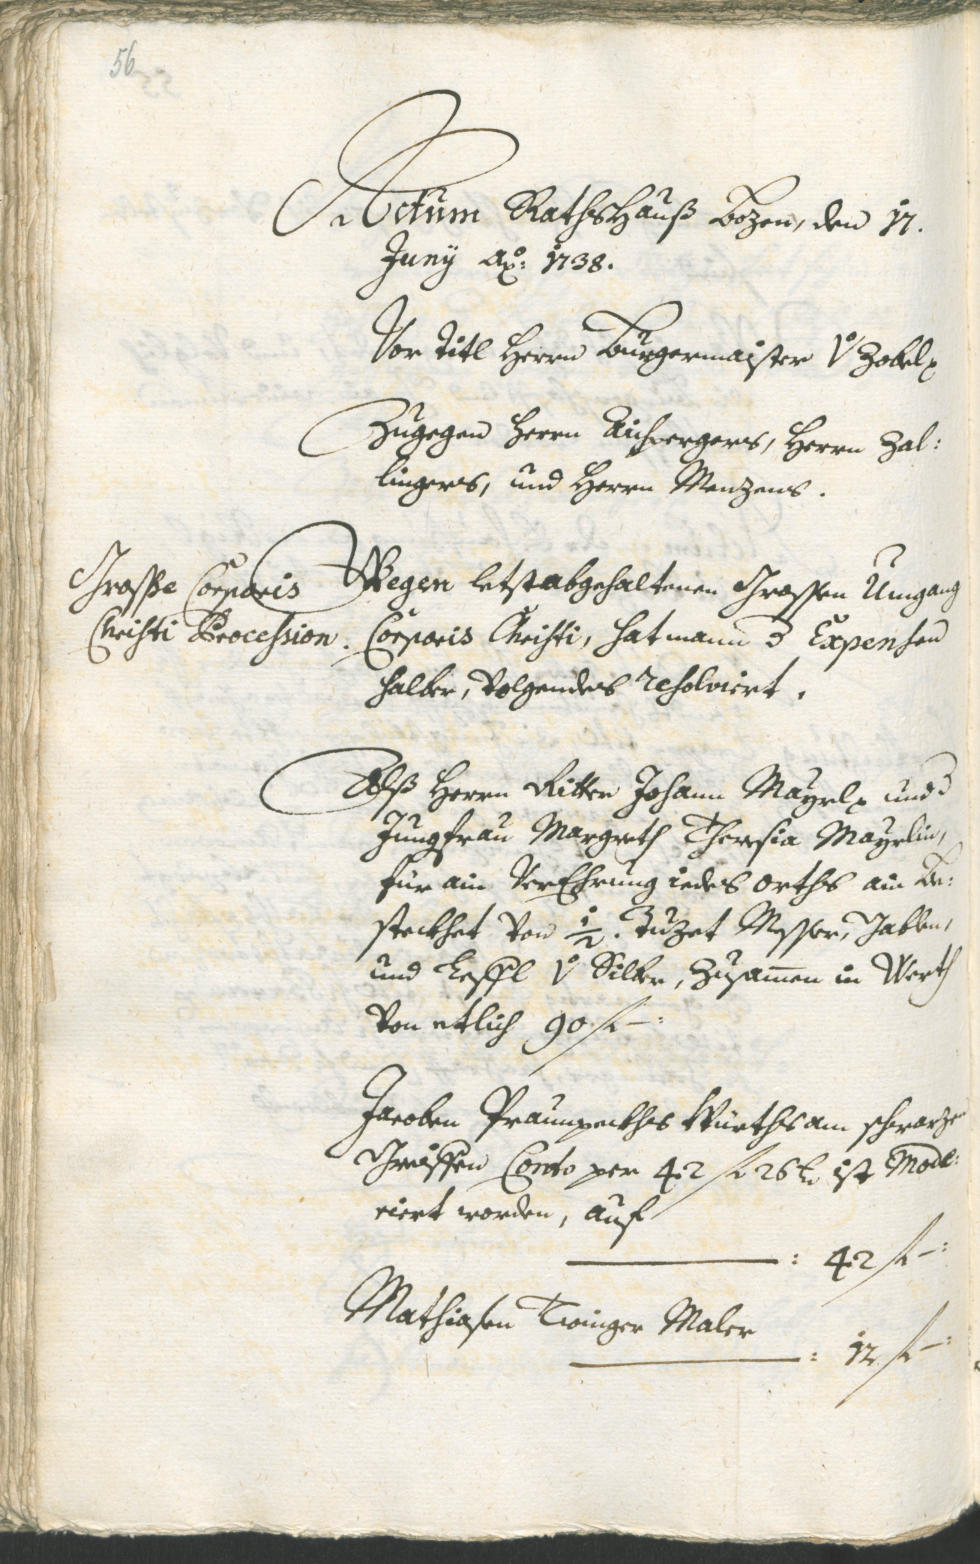 56
Actum Rathshauß Bozen, den 17.
Junÿ Ao: 1738.
Vor titl Herrn Burgermaister v Zobel
Zugegen Herrn Aichpergers, Herrn Zal:
lingers, und Herrn Menzens.
Grosse Corporis
Christi Procession.
Wegen letst abgehaltenen Grossen Umgang
Corporis Christi, hat mann d Expensen
halber, volgendes resolviert.
Alß Herrn Ritter Johann Mayrl und d
Jungfrau Margreth Theresia Mayrlin,
für ain VerEhrung iedes orths ain Be:
steckhet von 1/2. Tuzet Messer, Gabln,
und Leffl v Silber, zusamen in Werth
von etlich 90 f –:
Jacoben Praunpeckhs Würths am schwarzen
Greiffen Conto per 42 f 26 k. ist Mode:
riert worden, auf
: 42 f –:
Mathiasen Twinger Maler
: 12 f –: